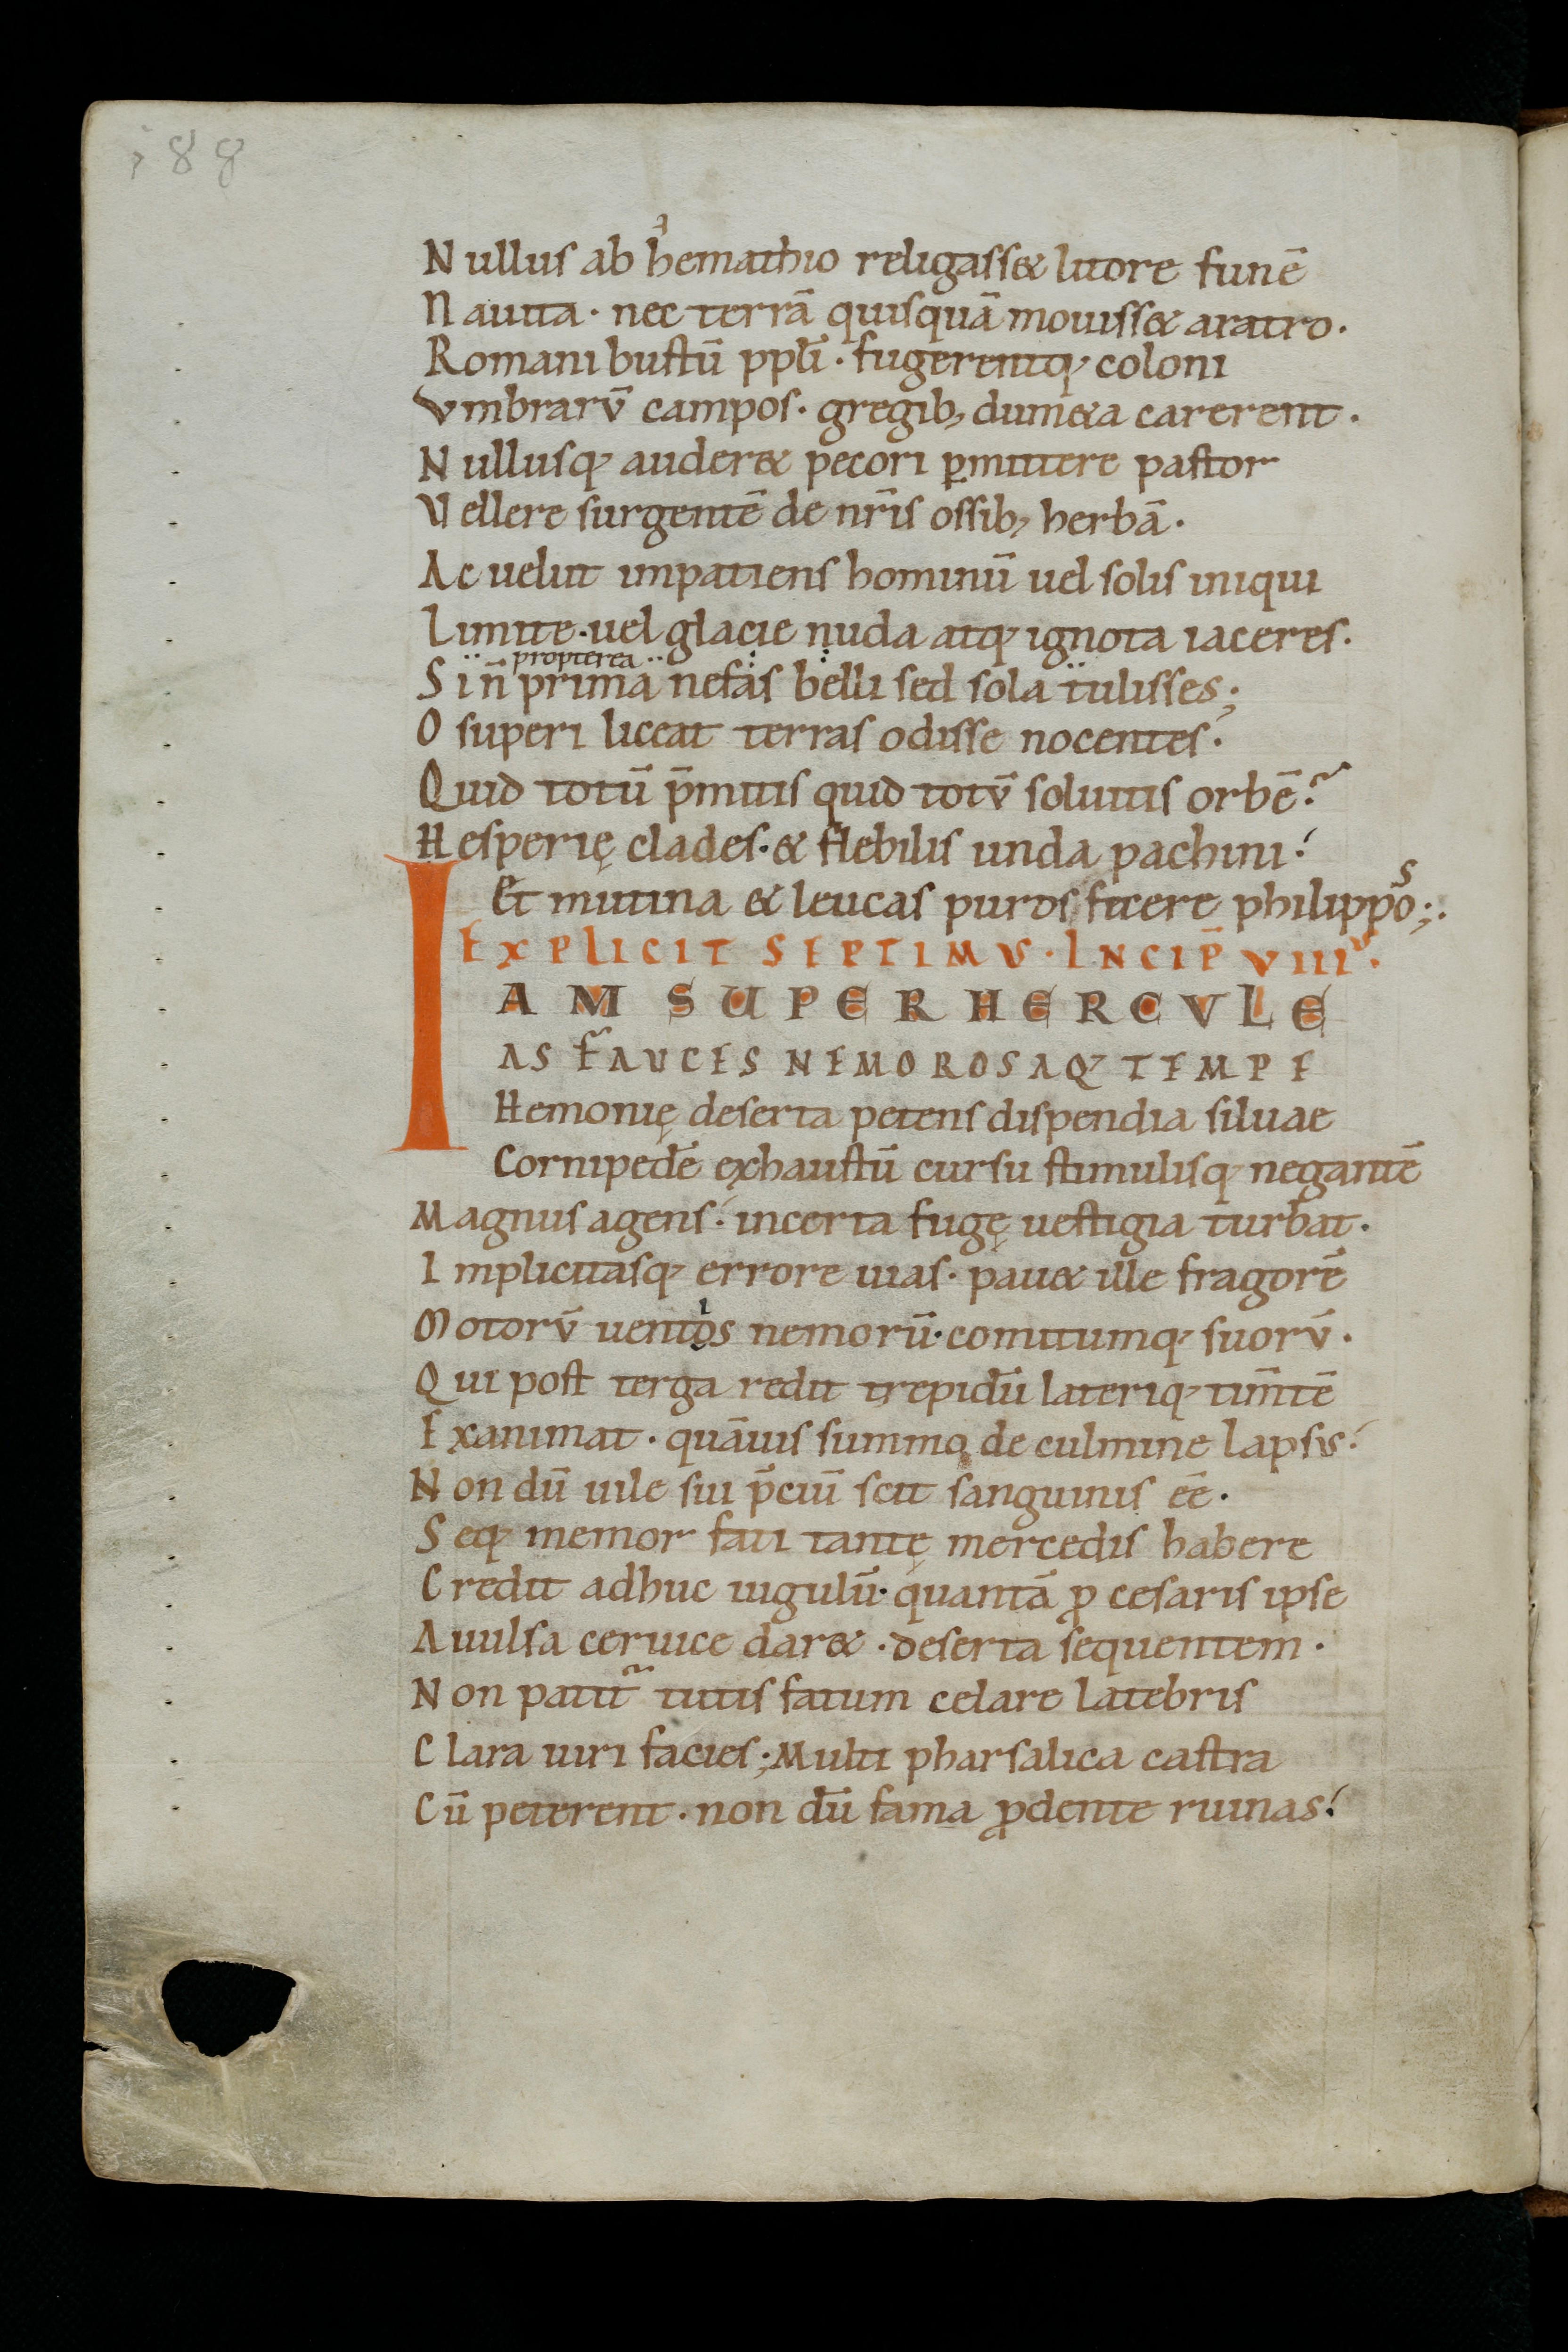 188
Nullus ab hemathio religasset litore funē
Nauita · nec terrā quisquā mouisset aratro ·
Romani bustū ppl̄i · fugerentq; coloni
Vmbrarū campos · gregib; dumeta carerent ·
Nullusq; auderet pecori ꝑmittere pastor
Vellere surgentē de nr̄is ossib; herbā ·
Ac uelut impatiens hominū uel solis iniqui
Limite · uel glacie nuda atq; ignota iaceres ·
propterea
Si n̄ prima nefas belli sed sola tulisses ;
O superi liceat terras odisse nocentes ·
Quid totū p̄mitis quid totū soluitis orbē ?
Hesperię clades · & flebilis unda pachini ·
s
Et mutina & leucas puros fecere philippo ;·
EXPLICIT SEPTIMVS · INCIP̄ VIIIv̄ ·
IAM SUPER HERCVLE
AS FAVCES NEMOROSAQ; TEMPE
Hemonię deserta petens dispendia siluae
Cornipedē exhaustū cursu stimulisq; negantē
Magnus agens · incerta fugę uestigia turbat ·
Implicitasq; errore uias · pauet ille fragorē
Motorū uentos nemorū · comitumq; suorū ·
Qui post terga redit trepidū lateriq; tim̄tē
Exanimat · quāuis summo de culmine lapsis ·
Non dū uile sui p̄ciū scit sanguinis ēē ·
Seq; memor fati tantę mercedis habere
Credit adhuc iugulū · quantā ꝓ cesaris ipse
Auulsa ceruice daret · deserta sequentem ·
Non patit᷑ tutis fatum celare latebris
Clara uiri facies ; Multi pharsalica castra
Cū peterent · non dū fama ꝓdente ruinas ·